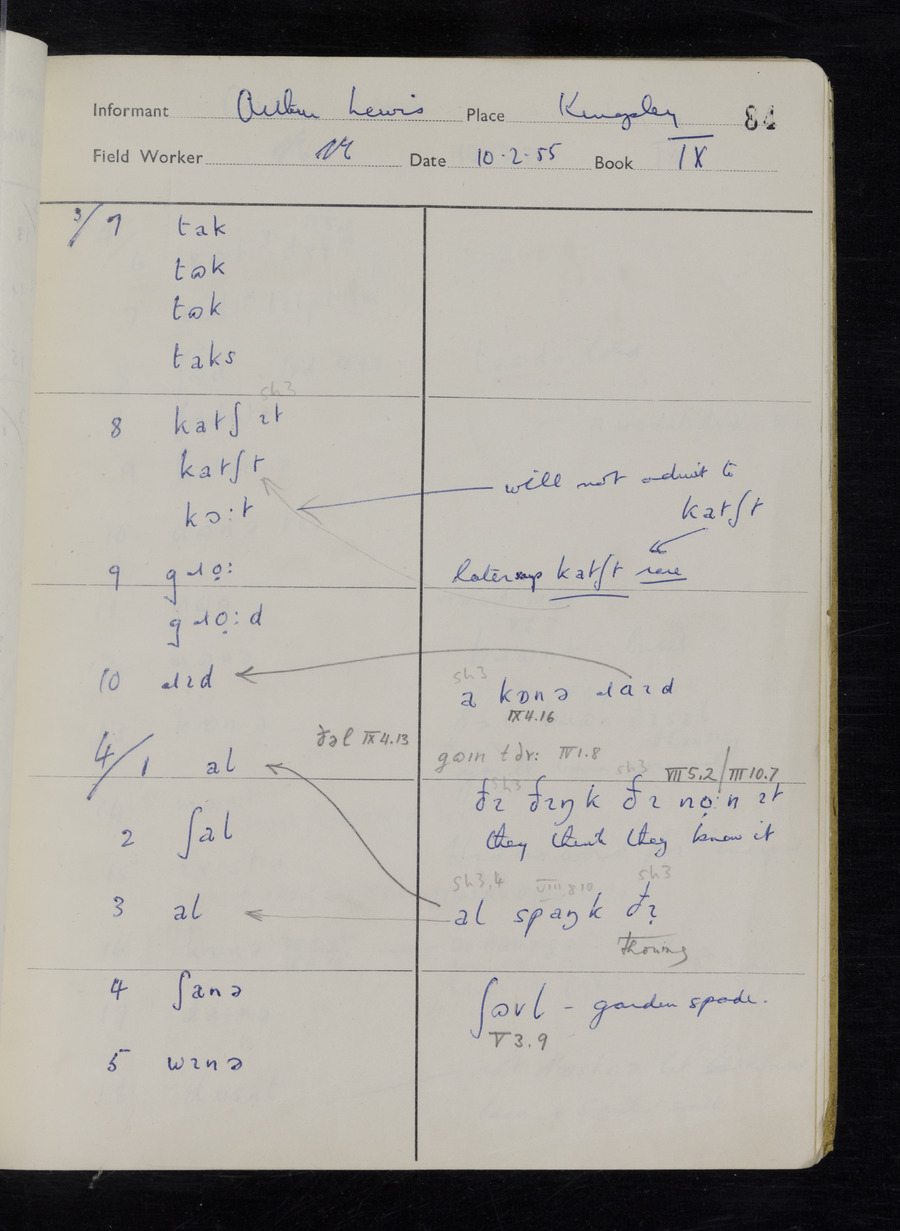 Informant Arthur Lewis Place Kingsley 84
Field Worker Date 10.2.55 Book IX
3/7 tak
tɷk
tɷk
taks
sh3
8 katʃ ɪt
katʃt
kɔ:t
will not admit to
katʃt
9 gɹọ:
later says katʃt rare
gɹọ:d
10 ɹɪd
sh3
a kɒnə ɹaɪd
IX 4.16
4/1 al
ðəl IX 4.13
gɷɪn tðɪ: IV 1.8
sh3 sh3 VII 5.2/III 10.7
ðɪ ðɪŋk ðɪ nọ:n ɪt
they think they know it
2 ʃal
sh3,4 VIII 8 10 sh3
3 al
al spaŋk ðɪ̣
thouing
4 ʃanə
ʃɷvl – garden spade.
V 3.9
5 wɪnə